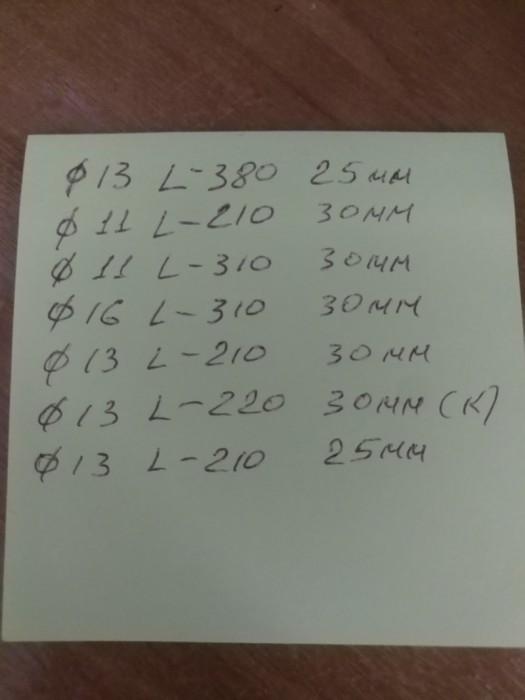 φ13 L-380 25мм
φ 11 L-210 30мм
φ 11 L-310 30мм
φ16 L-310 30мм
φ 13 L-210 30мм
φ13 L-220 30мм (к)
φ13 L-210 25мм